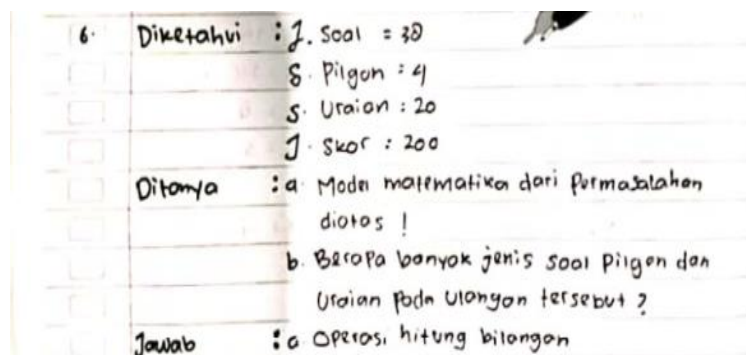 6. Diketahui : J. Soal = 30
S. Pilgan : 4
S. Uraian : 20
J. Skor : 200
Ditanya : a. Model matematika dari permasalahan
diatas !
b. Berapa banyak jenis soal Pilgan dan
Uraian pada ulangan tersebut ?
Jawab : a Operasi hitung bilangan